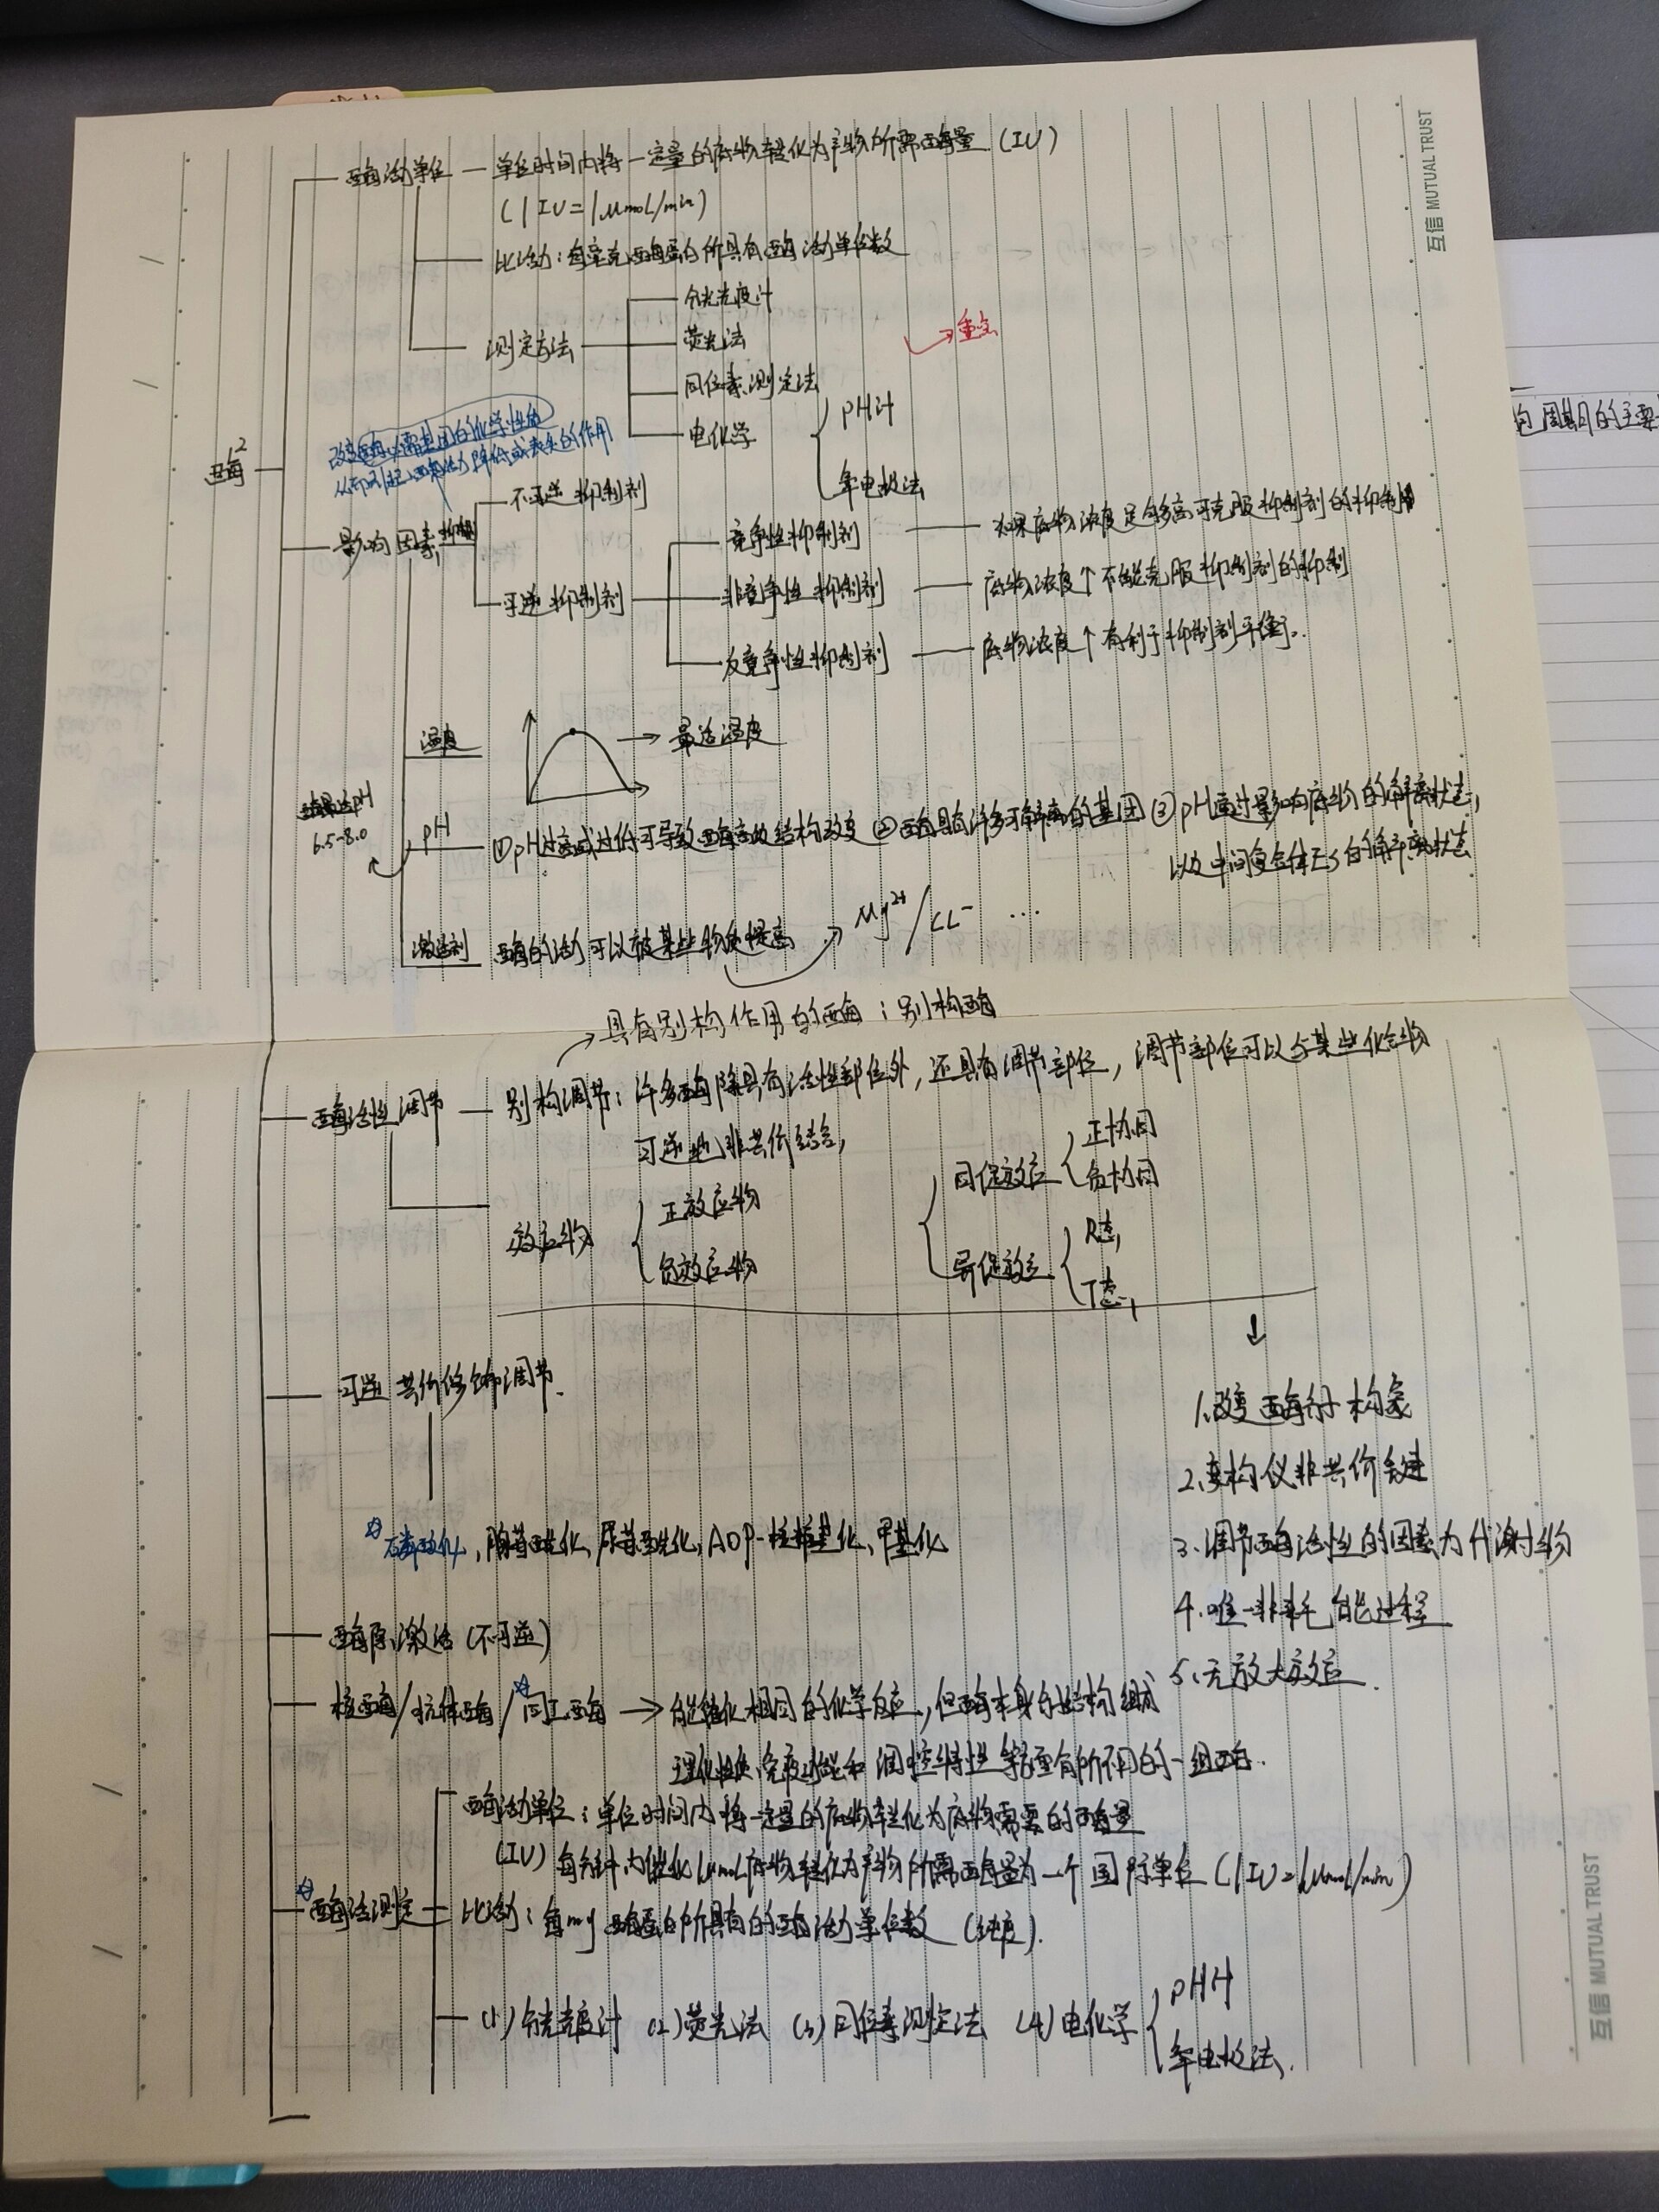 互信 MUTUAL TRUST
酶活力单位 — 单位时间内将一定量的底物转化为产物所需酶量 (IU)
(1IU=1μmol/min)
比活力:每毫克酶蛋白所具有酶活力单位数
测定方法
分光光度计
荧光法
→重点
同位素测定法
电化学
pH计
氧电极法
酶²
改变酶必需基团的化学性质
从而引起酶活力降低或丧失的作用
影响因素
抑制
不可逆抑制剂
可逆抑制剂
竞争性抑制剂 — 如果底物浓度足够多高可克服抑制剂的抑制作用
非竞争性抑制剂 — 底物浓度↑不能克服抑制剂的抑制
反竞争性抑制剂 — 底物浓度↑有利于抑制剂平衡
温度
→ 最适温度
酶最适pH
6.5-8.0
pH
①pH过高或过低可导致酶高级结构改变 ②酶具有许多可解离的基团 ③pH通过影响底物的解离状态,
以及中间复合体ES的解离状态
激活剂
酶的活力可以被某些物质提高
Mg²⁺/CL⁻ …
具有别构作用的酶:别构酶
酶活性调节 — 别构调节:许多酶除具有活性部位外,还具有调节部位,调节部位可以与某些化合物
可逆地非共价结合,
效应物
正效应物
负效应物
同促效应
正协同
负协同
异促效应
R态,
T态,
↓
可逆共价修饰调节.
1.改变酶分子构象
2.变构仅非共价键
☆磷酸化,腺苷酰化,尿苷酰化,ADP-核糖基化,甲基化
3.调节酶活性的因素为代谢物
4.唯一非耗能过程
5.无放大效应.
酶原激活(不可逆)
核酶/抗体酶/☆同工酶 → 能催化相同的化学反应,但酶本身的结构组成
理化性质,免疫功能和调控特性等方面有所不同的一组酶.
☆酶活测定
酶活力单位:单位时间内将一定量的底物转化为底物需要的酶量
(IU) 每分钟内催化1μmol底物转化为产物所需酶量为一个国际单位(1IU=1μmol/min)
比活力:每mg酶蛋白所具有的酶活力单位数(纯度).
(1)分光光度计 (2)荧光法 (3)同位素测定法 (4)电化学
pH计
氧电极法.
互信 MUTUAL TRUST